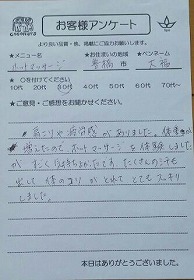 お客様アンケート
より良い品質・技、掲載にご協力お願いします。
★メニュー名
★お住まいの地域
★ペンネーム
ホットマッサージ
豊橋 市
大福
★○を付けてください
10代 20代 30代 40代 50代 60代 70代 80代
★ご意見・ご感想をお聞かせください。
肩こりや疲労感がありました。体重が
増えたのでホットマッサージを体験しました
がすごく気持ちよかったです。たくさんの汗を
出して体のコリがとれてとてもスッキリ
しました。
本日はありがとうございました。